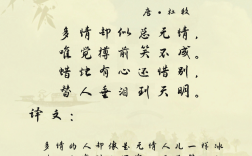 唐·杜牧
多情却似总无情，
唯觉樽前笑不成。
蜡烛有心还惜别，
替人垂泪到天明。
译文：
多情的人却像是无情人儿一样冰